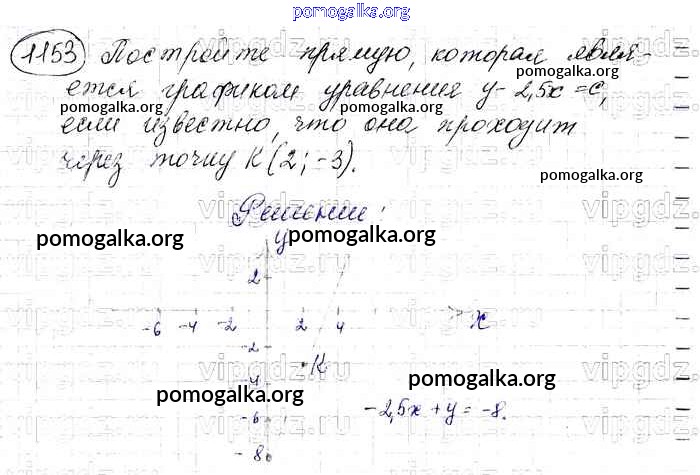 pomogalka.org
1153 Постройте прямую, которая явля-
ется графиком уравнения y - 2,5x = c,
если известно, что она проходит
через точку K(2; -3).
pomogalka.org
pomogalka.org
pomogalka.org
pomogalka.org
Решение:
pomogalka.org
pomogalka.org
y
2
-6 -4 -2 2 4 x
-2
K
-4
pomogalka.org
pomogalka.org
-2,5x + y = -8.
-6
-8
vipgdz.ru